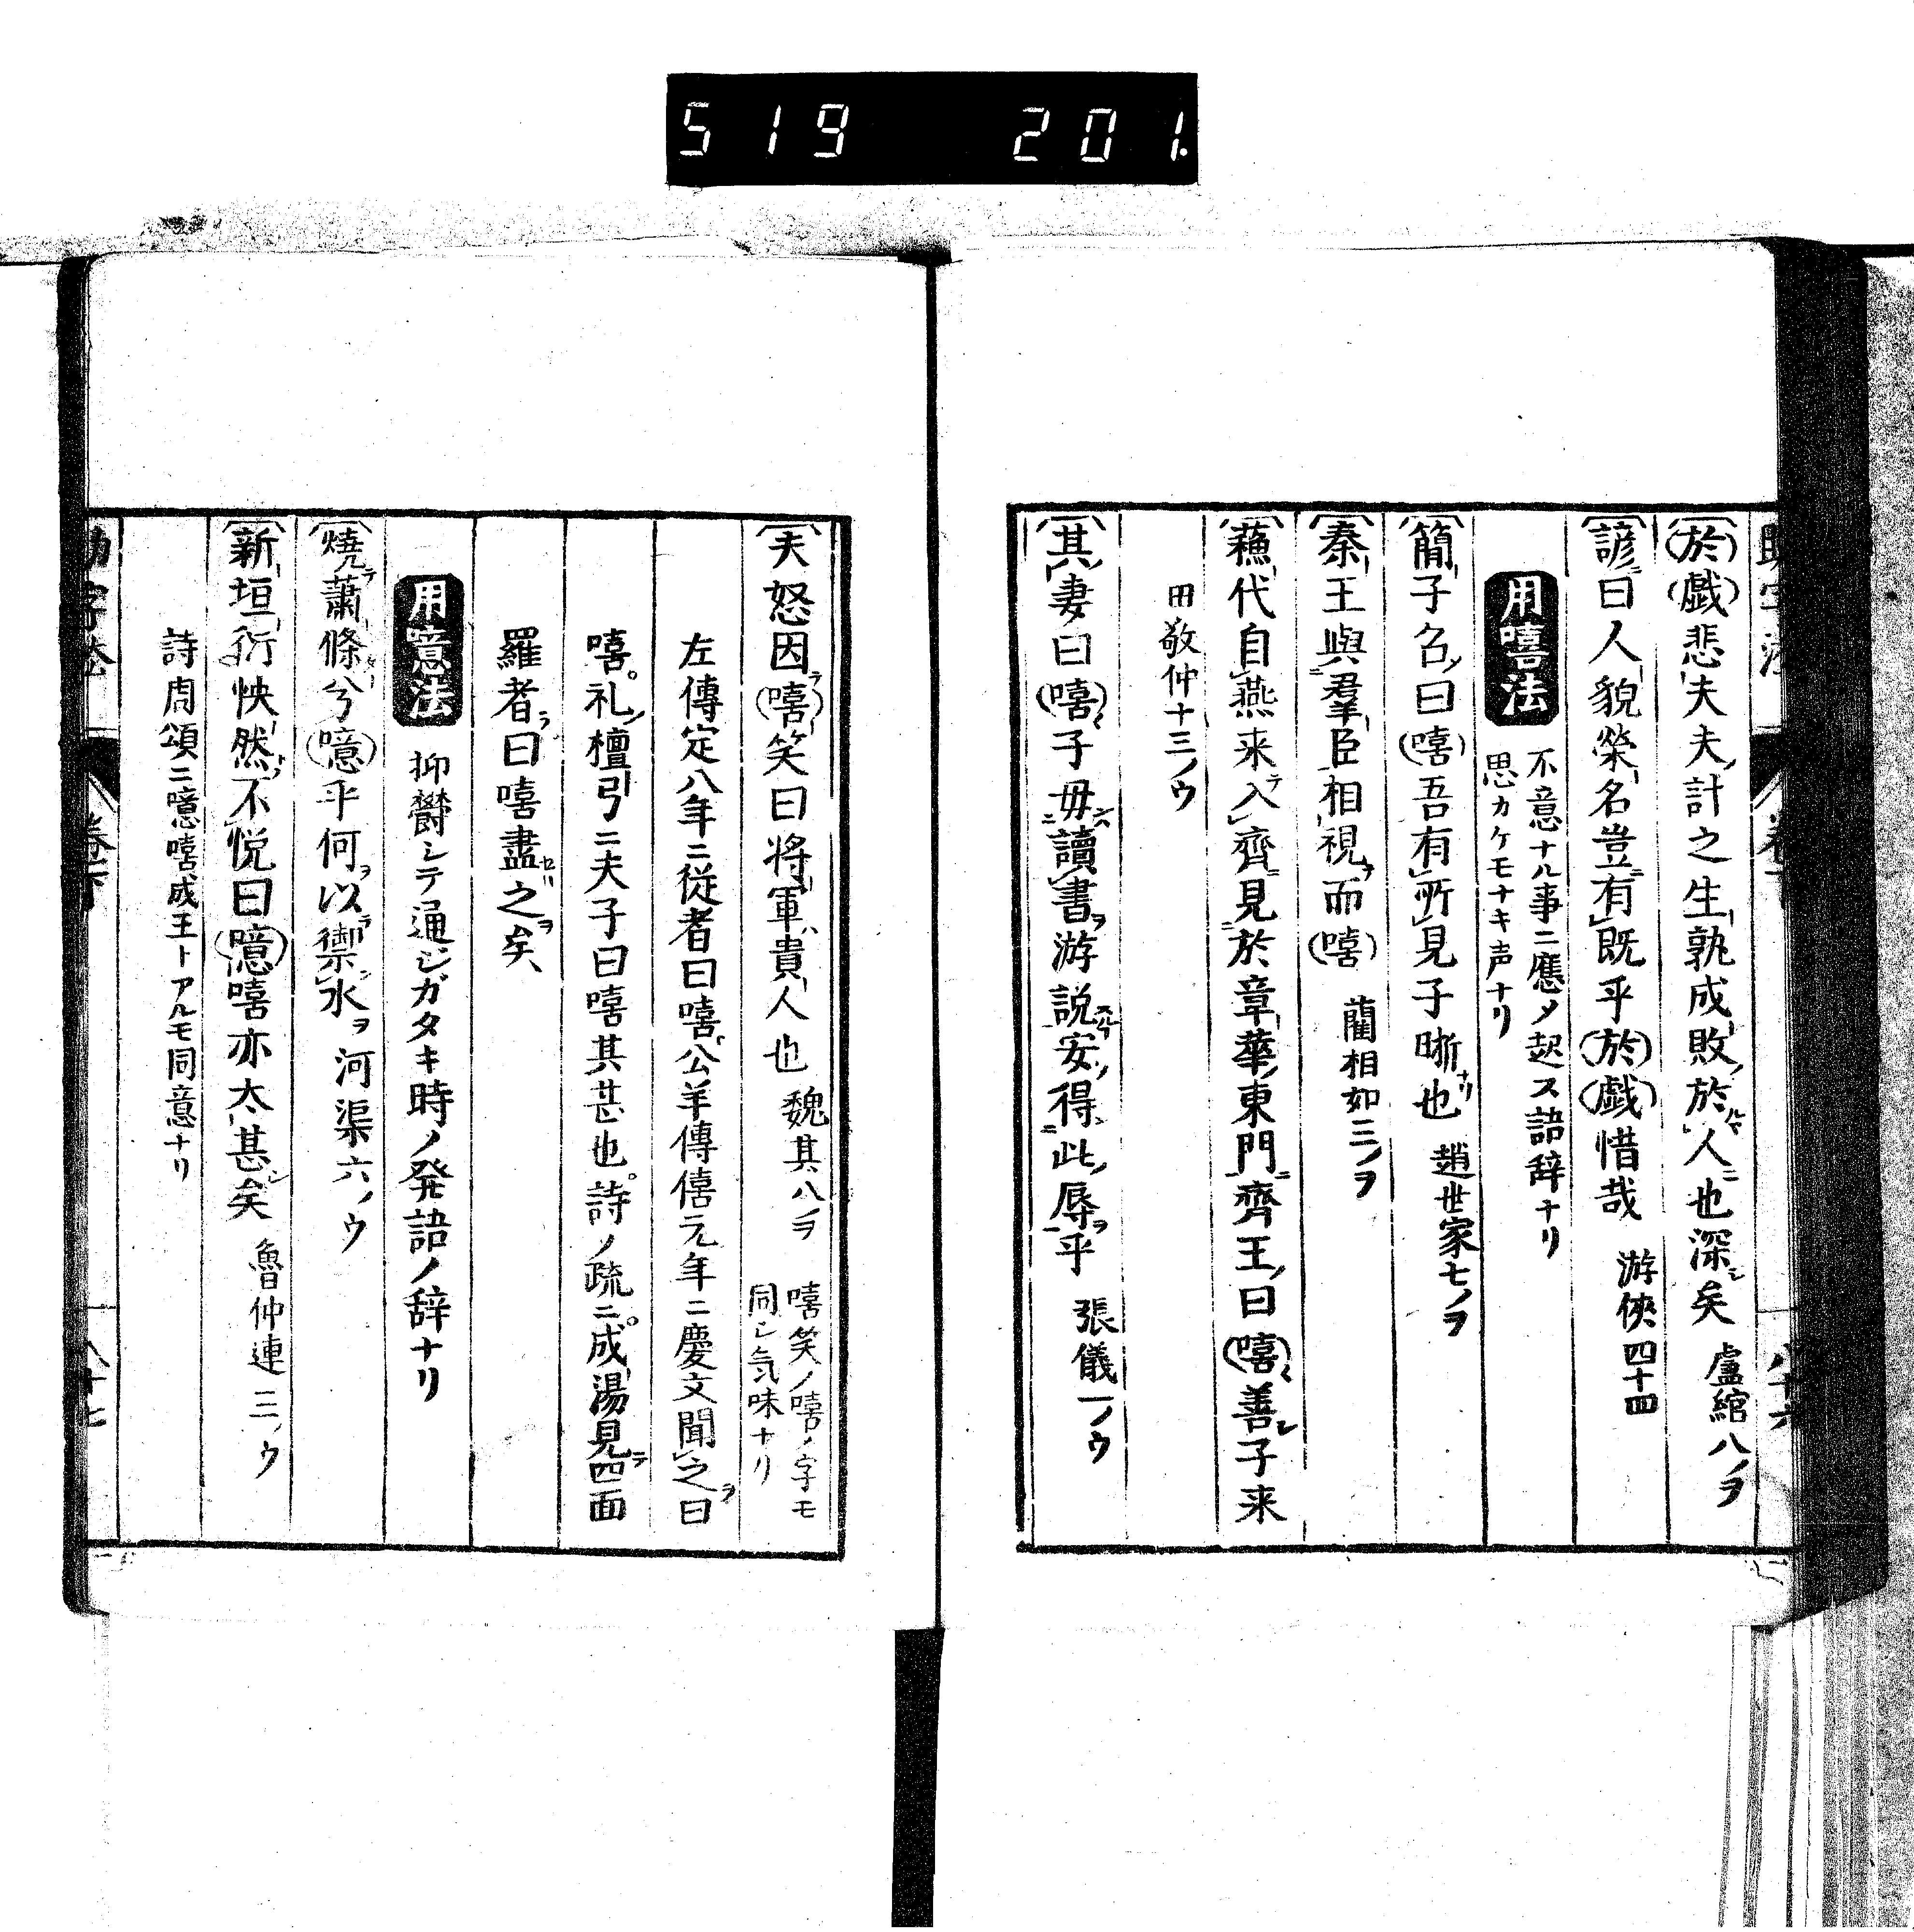 519 201.
於戯悲夫夫計之生孰成敗於人也深矣 盧綰八ノヲ
諺曰人貌榮名豈有既乎於戯惜哉 游俠四十四
用嘻法 不意ナル事ニ應〆起ス語辞ナリ
思カケモナキ声ナリ
簡子召曰嘻吾有所見子晰也 趙世家七ノヲ
秦王與羣臣相視而嘻 藺相如三ノヲ
蘓代自燕来入齊見於章華東門齊王曰嘻善子来
田敬仲十三ノウ
其妻曰嘻子毋讀書游説安得此辱乎 張儀一ノウ
夫怒因嘻笑曰将軍貴人也 魏其八ノヲ 嘻笑ノ嘻ノ字モ
同シ気味ナリ
左傳定八年ニ従者曰嘻公羊傳僖元年ニ慶文聞之曰
嘻。礼檀弓ニ夫子曰嘻其甚也。詩ノ疏ニ。成湯見四面
羅者曰嘻盡之矣
用意法 抑欝シテ通ジガタキ時ノ発語ノ辞ナリ
燒蕭條兮噫乎何以禦水 河渠六ノウ
新垣衍怏然不悦曰噫嘻亦太甚矣 魯仲連三ノウ
詩周頌ニ噫嘻成王トアルモ同意ナリ